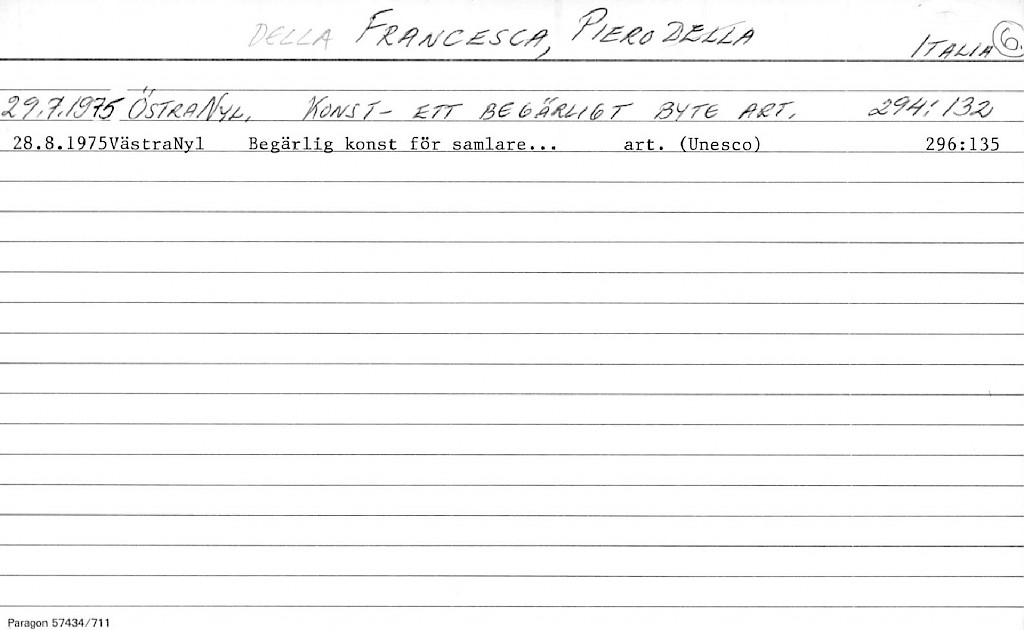 DELLA FRANCESCA, PIERO DELLA ITALIA 6.
29.7.1975 ÖSTRANYL. KONST- ETT BEGÄRLIGT BYTE ART. 294:132
28.8.1975VästraNyl Begärlig konst för samlare... art. (Unesco) 296:135
Paragon 57434/711